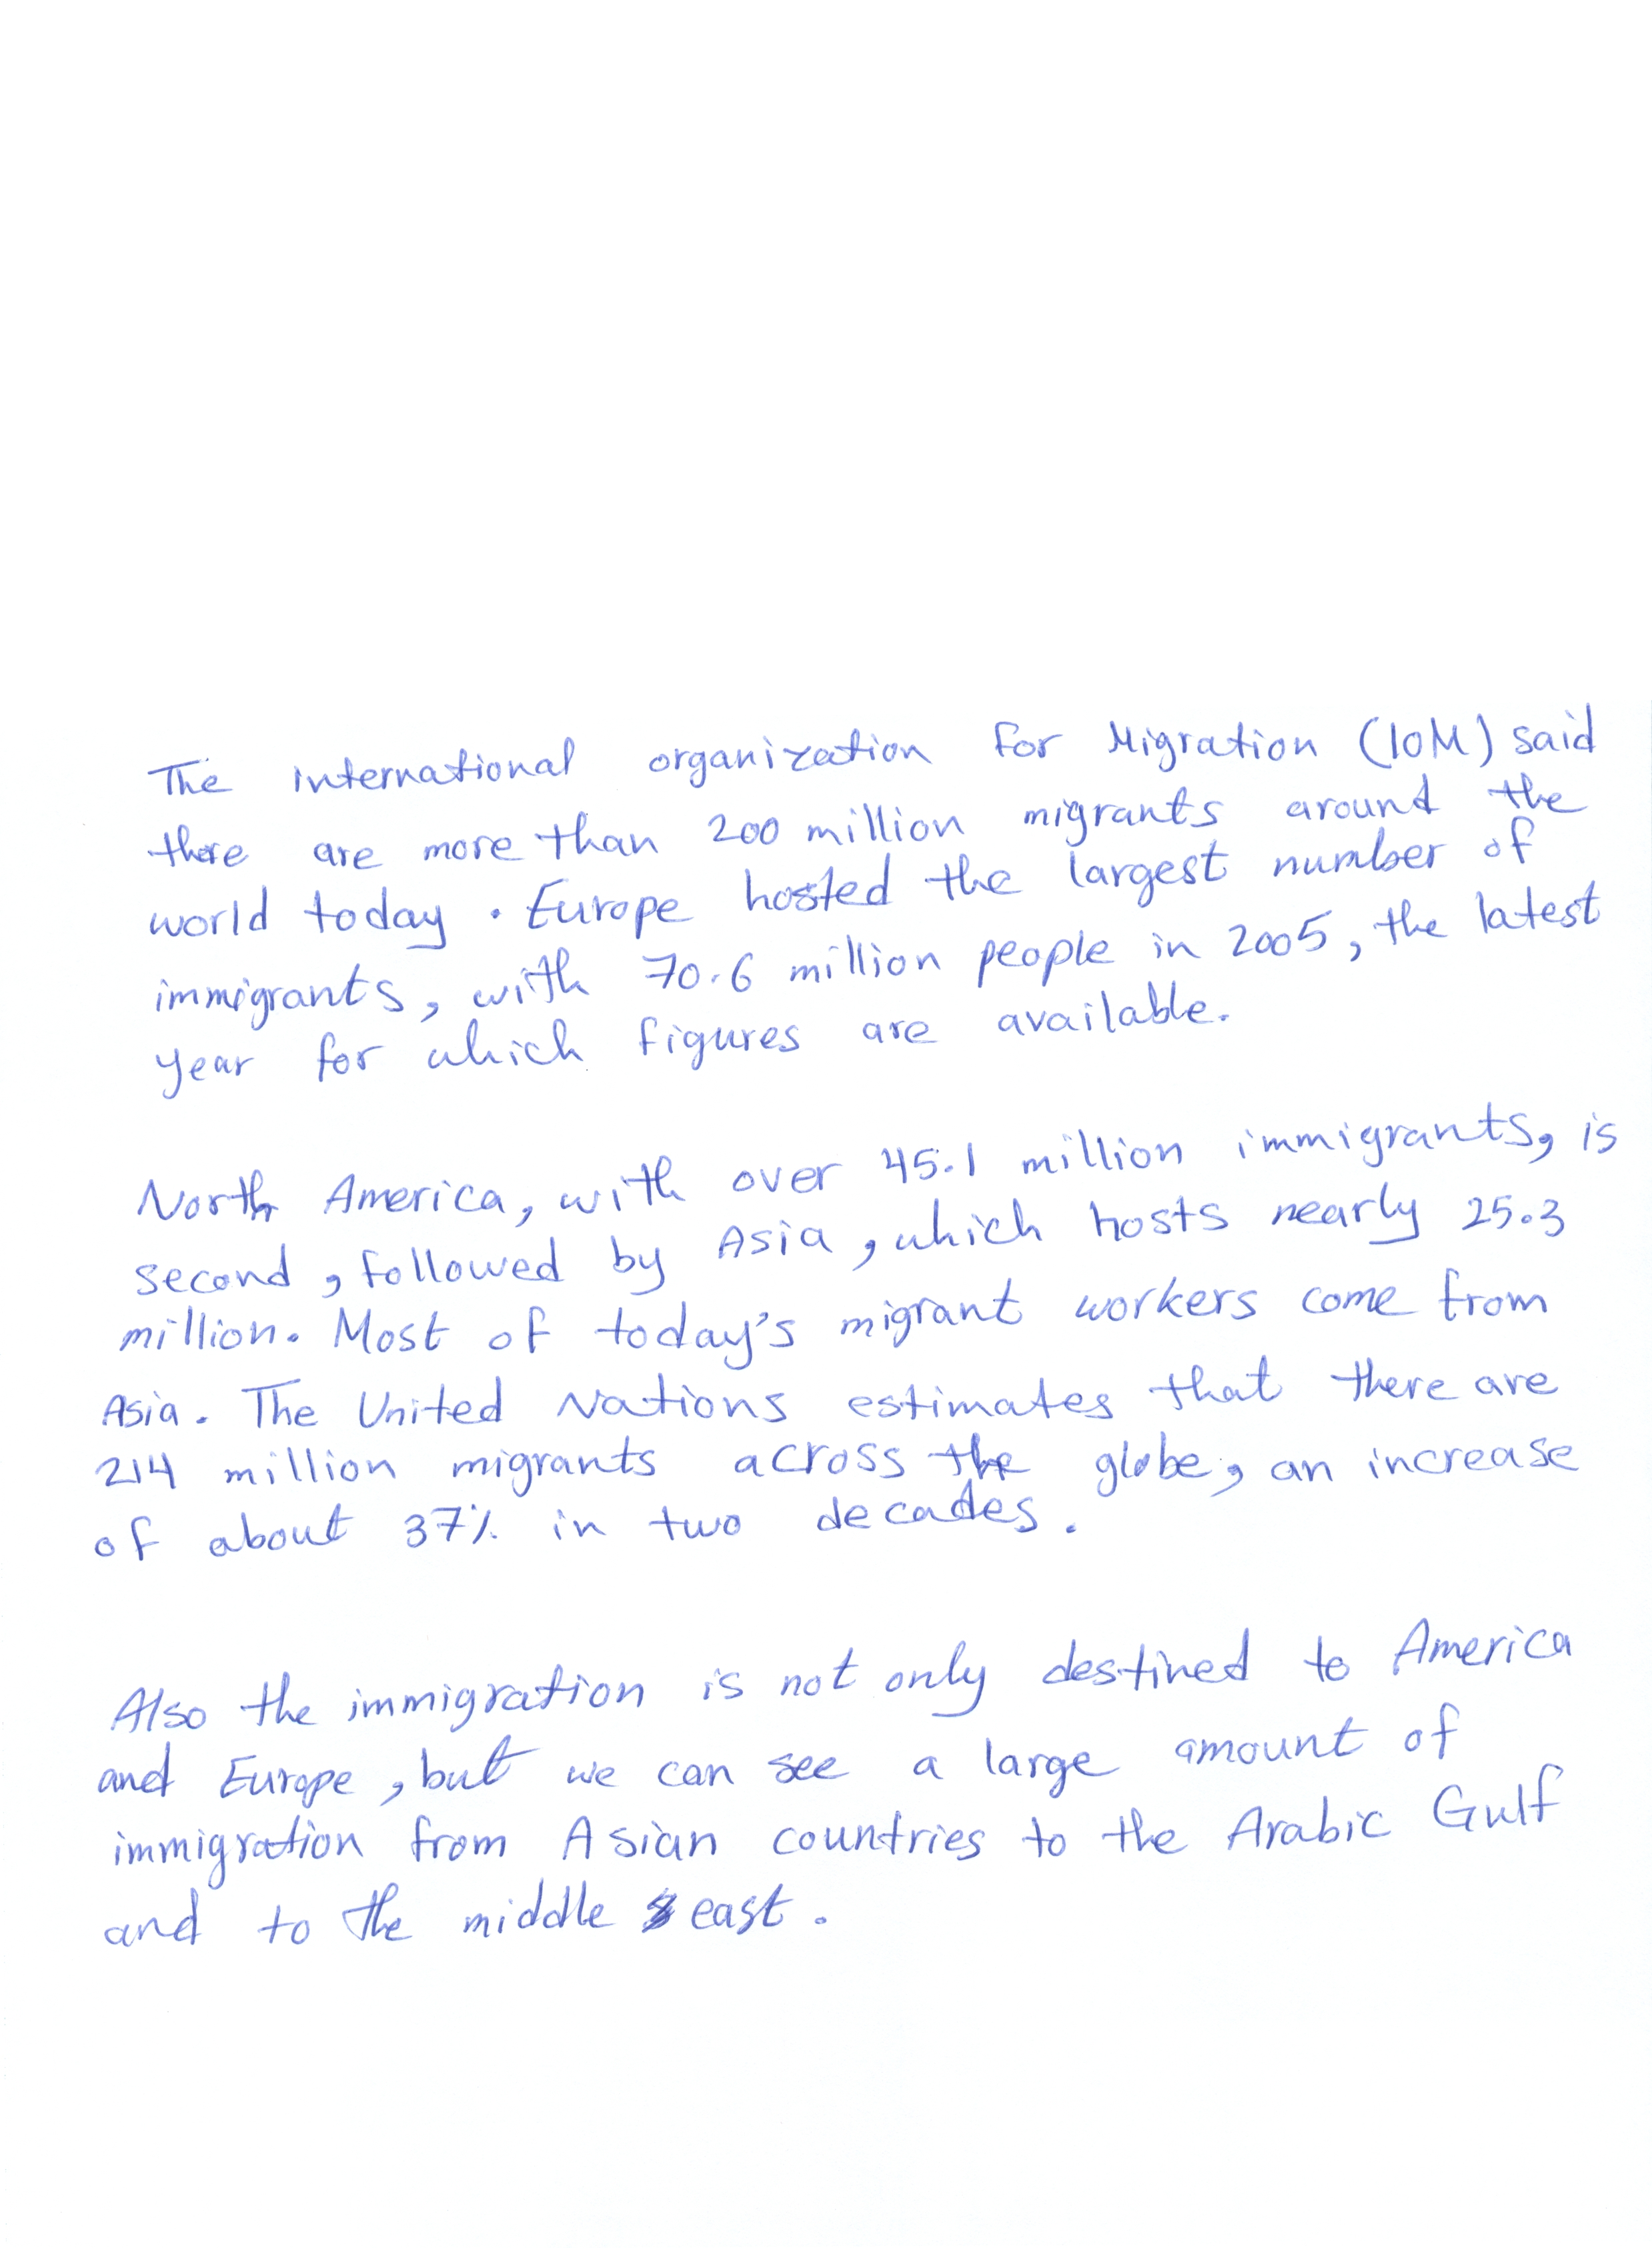 The international organization for Migration (IOM) said
there are more than 200 million migrants around the
world today. Europe hosted the largest number of
immigrants, with 70.6 million people in 2005, the latest
year for which figures are available.
North America, with over 45.1 million immigrants, is
second, followed by Asia, which hosts nearly 25.3
million. Most of today's migrant workers come from
Asia. The United Nations estimates that there are
214 million migrants across the globe, an increase
of about 37% in two decades.
Also the immigration is not only destined to America
and Europe, but we can see a large amount of
immigration from Asian countries to the Arabic Gulf
and to the middle east.